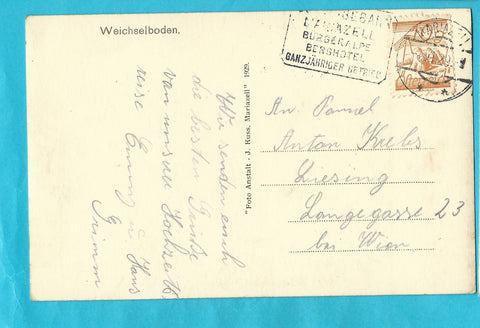 Weichselboden.
MARIAZELL
BÜRGERALPE
BERGHOTEL
GANZJÄHRIGER BETRIEB
"Foto Anstalt - J. Kuss, Mariazell" 1929.
Wir senden euch
die besten Grüße
von unserer Hochzeits
reise
Hans
An
Anton Krebs
Liesing
Langegasse 23
bei Wien